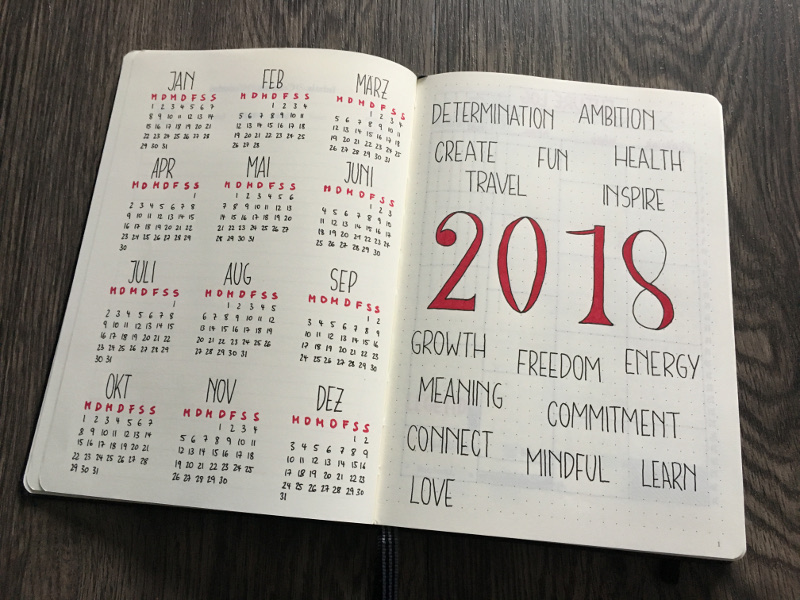 JAN
M D M D F S S
1 2 3 4 5 6 7
8 9 10 11 12 13 14
15 16 17 18 19 20 21
22 23 24 25 26 27 28
29 30 31
FEB
M D M D F S S
1 2 3 4
5 6 7 8 9 10 11
12 13 14 15 16 17 18
19 20 21 22 23 24 25
26 27 28
MÄRZ
M D M D F S S
1 2 3 4
5 6 7 8 9 10 11
12 13 14 15 16 17 18
19 20 21 22 23 24 25
26 27 28 29 30 31
APR
M D M D F S S
1
2 3 4 5 6 7 8
9 10 11 12 13 14 15
16 17 18 19 20 21 22
23 24 25 26 27 28 29
30
MAI
M D M D F S S
1 2 3 4 5 6
7 8 9 10 11 12 13
14 15 16 17 18 19 20
21 22 23 24 25 26 27
28 29 30 31
JUNI
M D M D F S S
1 2 3
4 5 6 7 8 9 10
11 12 13 14 15 16 17
18 19 20 21 22 23 24
25 26 27 28 29 30
JULI
M D M D F S S
1
2 3 4 5 6 7 8
9 10 11 12 13 14 15
16 17 18 19 20 21 22
23 24 25 26 27 28 29
30 31
AUG
M D M D F S S
1 2 3 4 5
6 7 8 9 10 11 12
13 14 15 16 17 18 19
20 21 22 23 24 25 26
27 28 29 30 31
SEP
M D M D F S S
1 2
3 4 5 6 7 8 9
10 11 12 13 14 15 16
17 18 19 20 21 22 23
24 25 26 27 28 29 30
OKT
M D M D F S S
1 2 3 4 5 6 7
8 9 10 11 12 13 14
15 16 17 18 19 20 21
22 23 24 25 26 27 28
29 30 31
NOV
M D M D F S S
1 2 3 4
5 6 7 8 9 10 11
12 13 14 15 16 17 18
19 20 21 22 23 24 25
26 27 28 29 30
DEZ
M D M D F S S
1 2
3 4 5 6 7 8 9
10 11 12 13 14 15 16
17 18 19 20 21 22 23
24 25 26 27 28 29 30
31
DETERMINATION AMBITION
CREATE FUN HEALTH
TRAVEL INSPIRE
2018
GROWTH FREEDOM ENERGY
MEANING COMMITMENT
CONNECT MINDFUL LEARN
LOVE
1